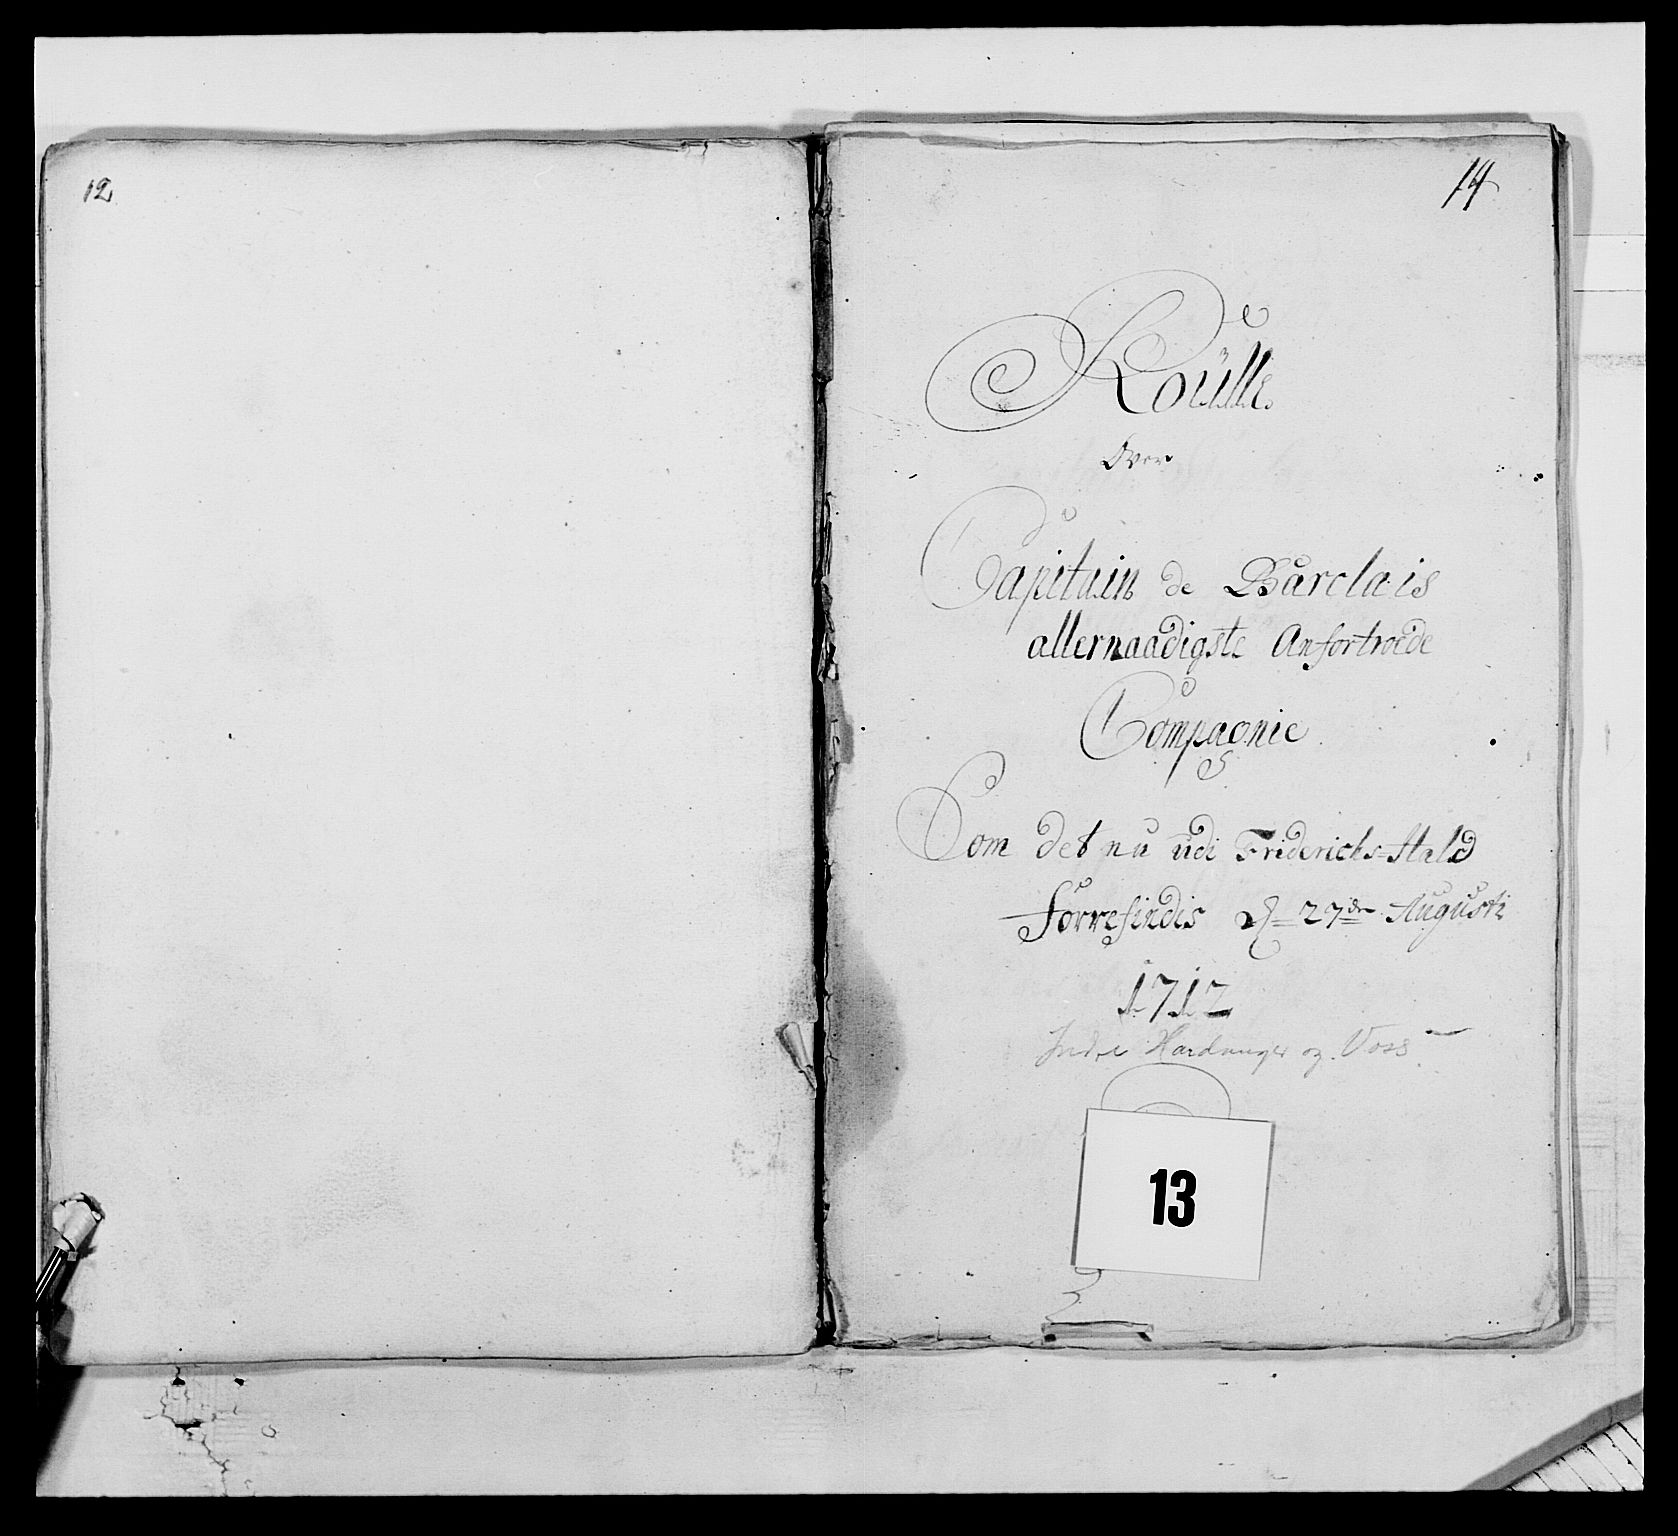 12
14
Roulle
Over
Capitain de Barclais
allernaadigste Anfortroede
Compagnie
Som det nu udi Friderichs=Hald
forrefindis d= 27de Augusti
1712
Indre Hardanger og Voss
13